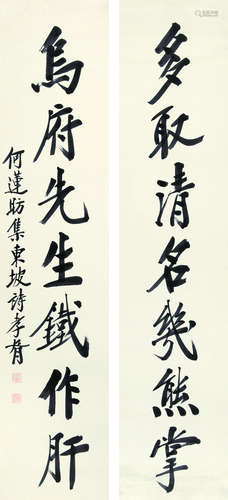 多取清名幾熊掌
烏府先生鐵作肝
何蓮舫集東坡詩孝胥